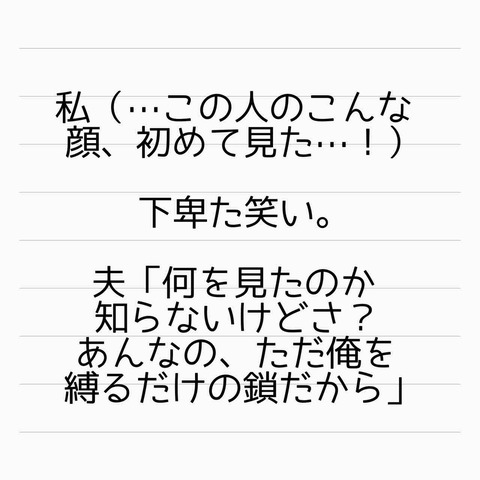 私（…この人のこんな
顔、初めて見た…！）
下卑た笑い。
夫「何を見たのか
知らないけどさ？
あんなの、ただ俺を
縛るだけの鎖だから」